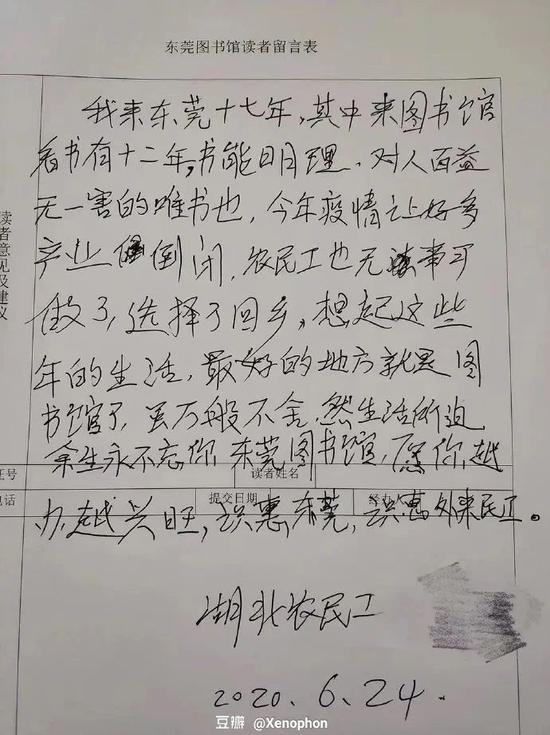 东莞图书馆读者留言表
读者意见及建议
我来东莞十七年,其中来图书馆
看书有十二年,书能明理、对人百益
无一害的唯书也,今年疫情让好多
产业倒闭,农民工也无事可
做了,选择了回乡,想起这些
年的生活,最好的地方就是图
书馆了,虽万般不舍,然生活所迫
余生永不忘你,东莞图书馆,愿你越
证号
读者姓名
电话
提交日期
经办人
办越兴旺,识惠东莞,识惠外来民工。
湖北农民工
2020.6.24.
豆瓣 @Xenophon